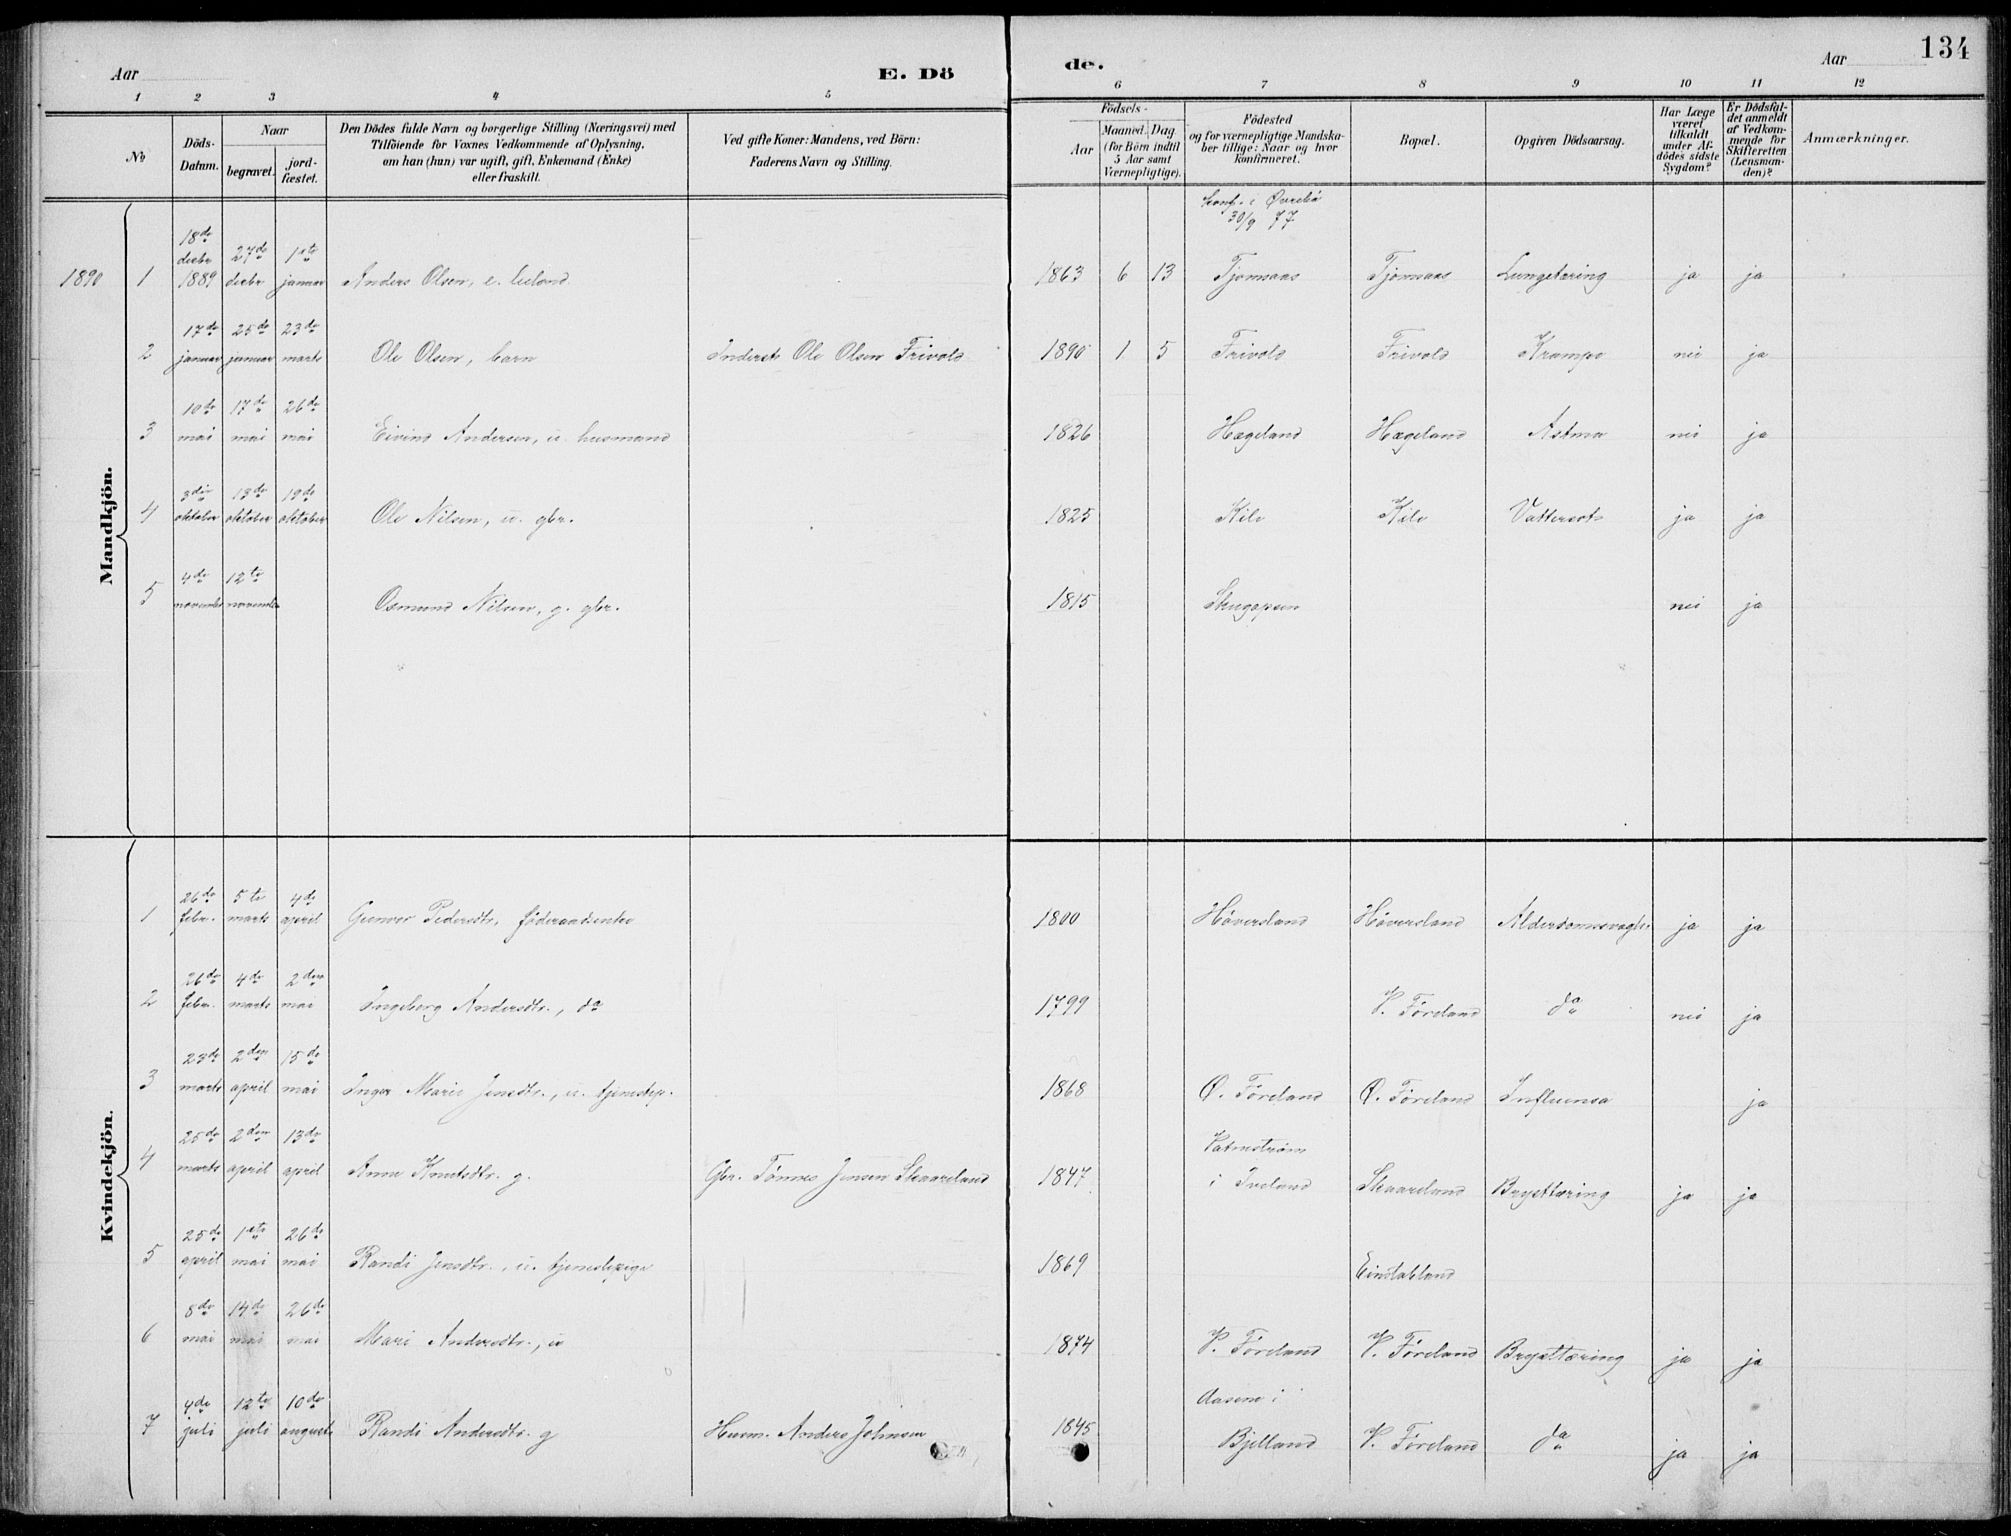 134
Aar
E. Dö
de.
Aar
1 2 3 4 5 6 7 8 9 10 11 12
№
Döds-
Datum.
Naar
begravet.
jord-
fæstet.
Den Dödes fulde Navn og borgerlige Stilling (Næringsvei) med
Tilföiende for Voxnes Vedkommende af Oplysning,
om han (hun) var ugift, gift, Enkemand (Enke)
eller fraskilt.
Ved gifte Koner: Mandens, ved Börn:
Faderens Navn og Stilling.
Födsels-
Aar
Maaned. Dag
(for Börn indtil
5 Aar samt
Værnepligtige).
Födested
og for værnepligtige Mandska-
ber tillige: Naar og hvor
konfirmeret.
Bopæl.
Opgiven Dödsaarsag.
Har Læge
været
tilkaldt
under Af-
dödes sidste
Sygdom?
Er Dödsfal-
det anmeldt
af Vedkom-
mende for
Skifteretten
(Lensman-
den)?
Anmærkninger.
Mandkjön.
Konf. i Øvrebø
30/9 77
18de 27de 1ste
decbr
1890 1 1889 decbr januar Anders Olsen, e. 1863 6 13 Tjomaas Tjomaas Lungetæring ja ja
17de 25de 23de
2 januar januar marts Ole Olsen, barn Inderst Ole Olsen Frivold 1890 1 5 Frivold Frivold Krampe nei ja
10de 17de 26de
3 mai mai mai Eivind Andersen, u. husmand 1826 Hægeland Hægeland Astma nei ja
3die 13de 19de
4 oktober oktober oktober Ole Nilsen, u. gbr. 1825 Kile Kile Vattersot ja ja
4de 12te
5 november november Osmund Nilsen, g. gbr. 1815 nei ja
Kvindekjön.
26de 5te 4de
1 febr. marts april Gunvor Pedersdtr. føderaadsenke 1800 Høversland Høversland Alderdomssvagh. ja ja
26de 4de 2den
2 febr. marts mai Ingeborg Andersdtr., do 1799 V. Føreland do nei ja
23de 2den 15de
3 marts april mai Inger Marie Jensdtr., u. tjenestep. 1868 Ø. Føreland Ø. Føreland Influensa ja
25de 2den 13de
Vatnestrøm
4 marts april april Anne Knutsdtr. g. Gbr. Tønnes Jensen Skaareland 1847 i Iveland Skaareland Brysttæring ja ja
25de 1ste 26de
5 april mai mai Randi Jensdtr., u. tjenestepige 1869 Einstabland
8de 14de 26de
6 mai mai mai Mari Andersdtr., u 1874 V. Føreland V. Føreland Brysttæring ja ja
4de 12te 10de
Aasene i
7 juli juli august Randi Andersdtr. g Husm. Anders Johnsen 1845 Bjelland V. Føreland do ja ja